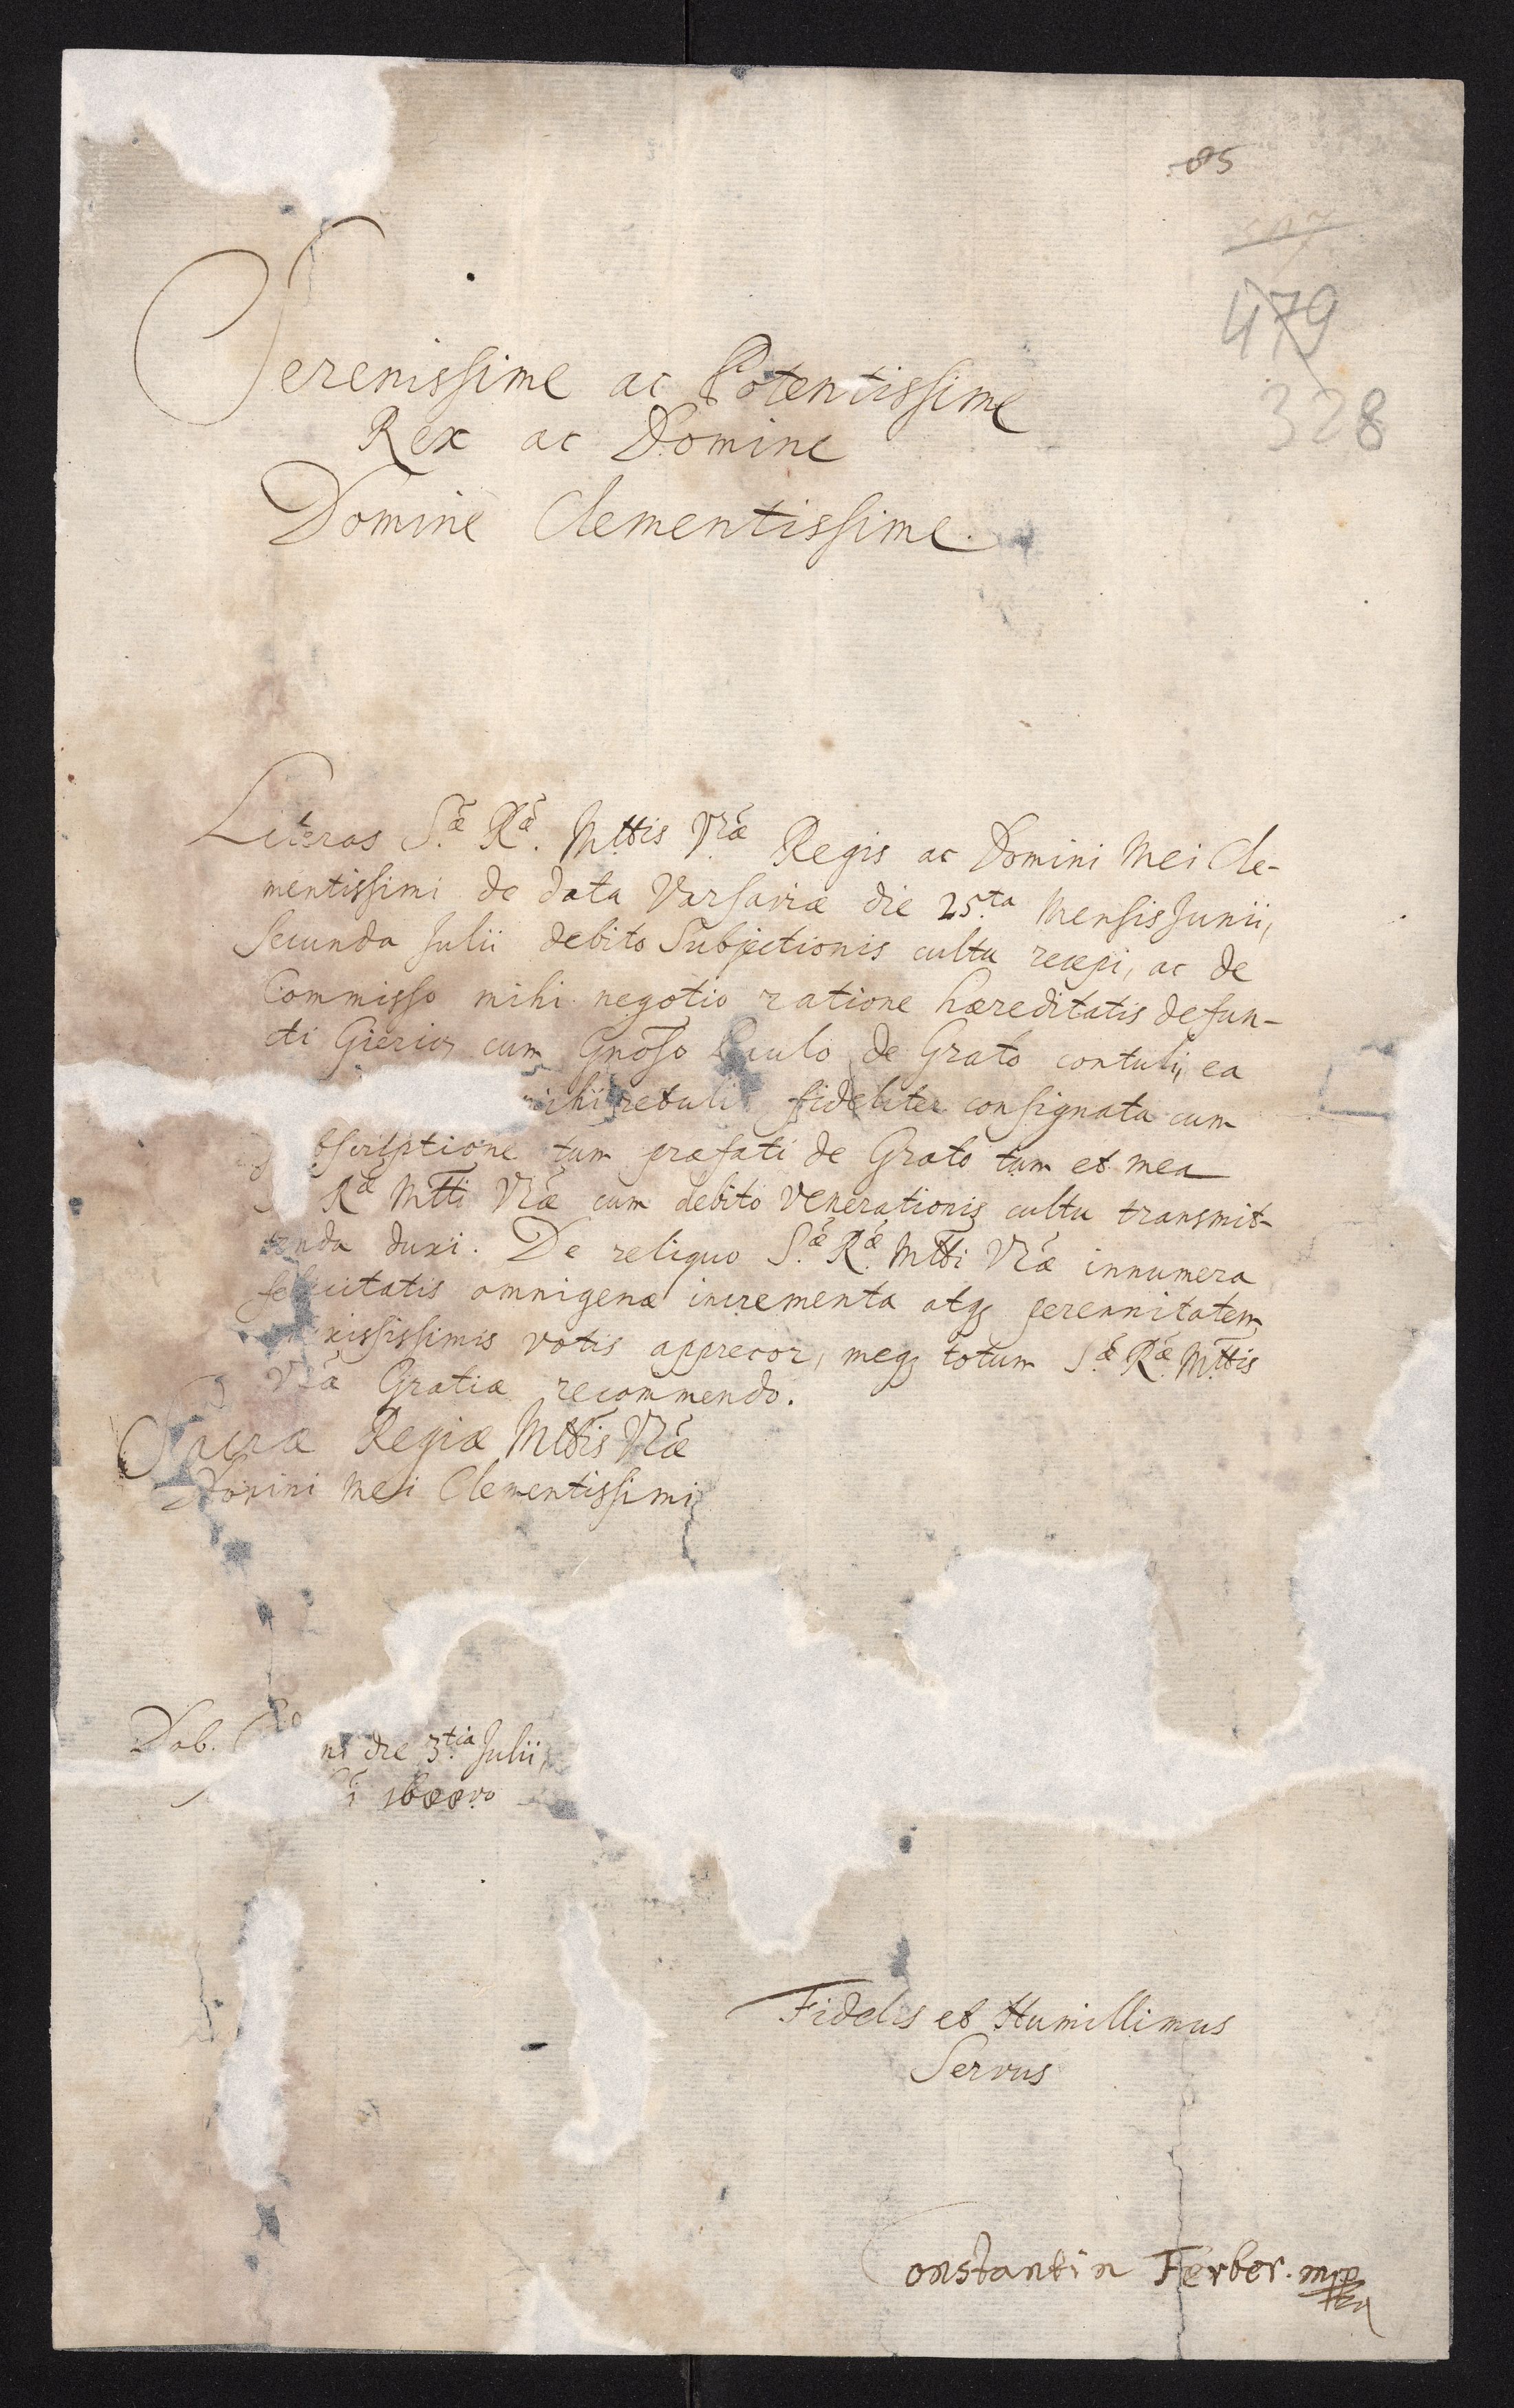 85
479
328
Serenissime ac Potentissime
Rex ac Domine
Domine Clementissime.
Literas S.æ R.æ Mttis Vræ Regis ac Domini Mei Cle-
mentissimi de data Varsaviæ die 25.ta Mensis Junii,
Secunda Julii debito Subjectionis cultu recepi, ac de
Commisso mihi negotio ratione hæreditatis defun-
cti cum Gnoso Paulo de Grato contuli, ea
mihi retulit fideliter consignata cum
bscriptione tum præfati de Grato tum et mea
R.æ Mtti Vræ cum debito venerationis cultu transmit-
tenda duxi. De reliquo S.æ R.æ Mtti Vræ innumera
felicitatis omnigenæ incrementa atq; perennitatem
xississimis votis apprecor, meq; totum S.æ R.æ Mttis
Vræ Gratiæ recommendo.
Sacræ Regiæ Mttis Vræ
Domini Mei Clementissimi
Dab. ni die 3.tia Julii,
Fidelis et Humillimus
Servus
Constantin Ferber. mpp